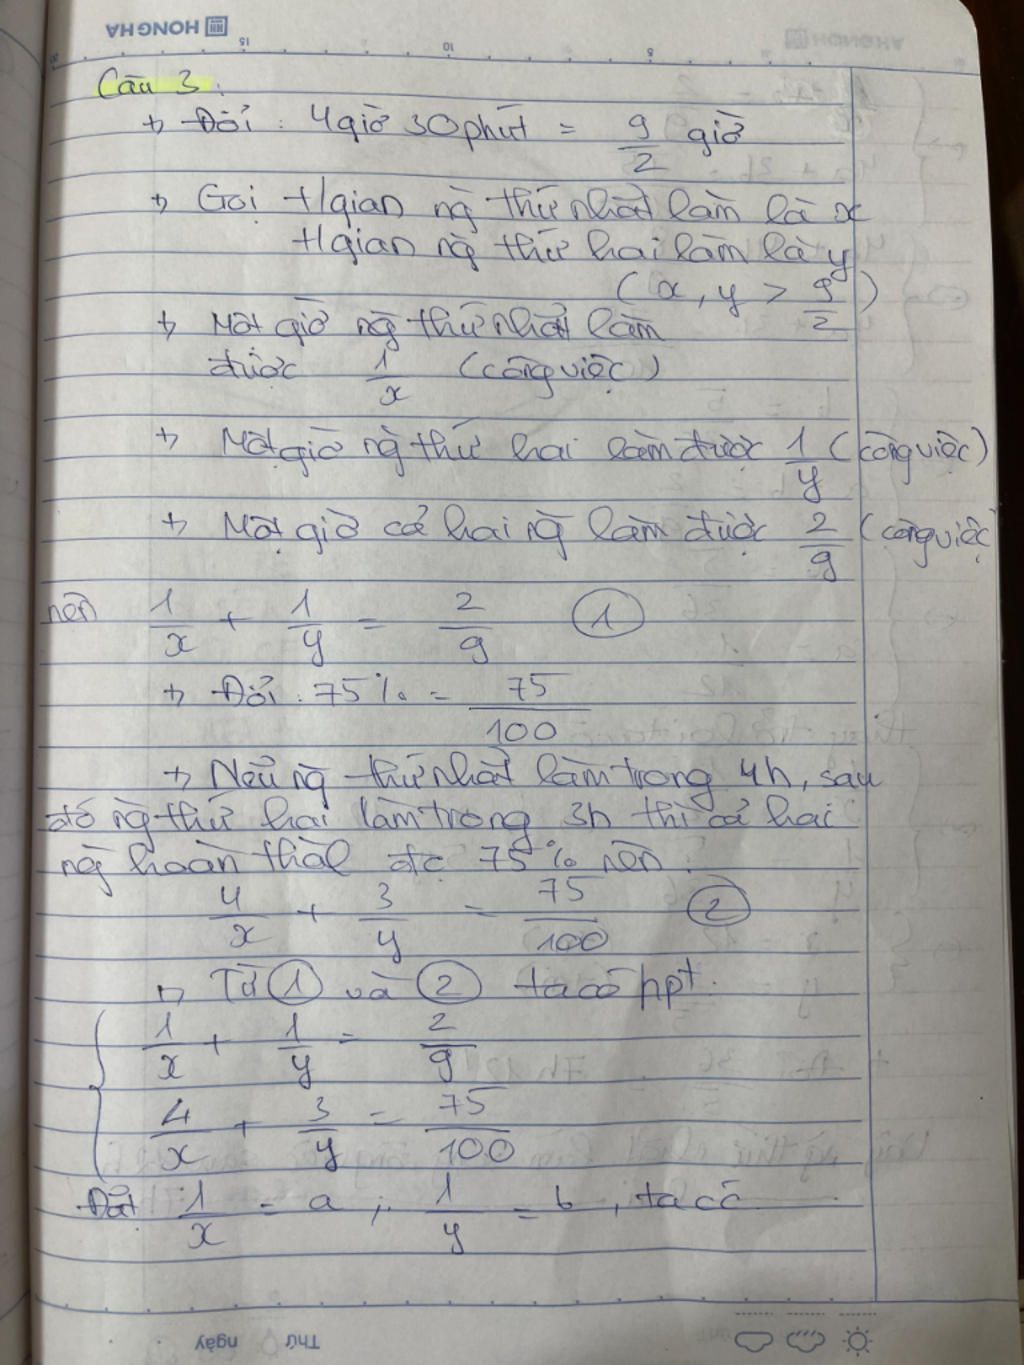 HONG HA
15 10 5
Câu 3:
+, Đổi: 4 giờ 30 phút = 9/2 giờ
+, Gọi t/gian ng̀ thứ nhất làm là x
t/gian ng̀ thứ hai làm là y
(x, y > 9/2)
+, Một giờ ng̀ thứ nhất làm
được 1/x (công việc)
+, Một giờ ng̀ thứ hai làm được 1/y (công việc)
+, Một giờ cả hai ng̀ làm được 2/9 (công việc)
nên 1/x + 1/y = 2/9 ①
+, Đổi: 75% = 75/100
+, Nếu ng̀ thứ nhất làm trong 4h, sau
đó ng̀ thứ hai làm trong 3h thì cả hai
ng̀ hoàn thàh đc 75% nên:
4/x + 3/y = 75/100 ②
+, Từ ① và ② ta có hpt:
{ 1/x + 1/y = 2/9
4/x + 3/y = 75/100
Đặt 1/x = a ; 1/y = b, ta có
Thứ ngày